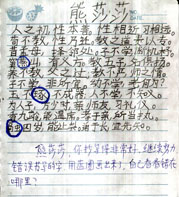 熊莎莎
人之初 性本善 性相近 习相远。
苟不教 性乃迁 教之道 贵以专。
昔孟母 择邻处 子不学 断机杼。
窦山 有义方 教五子 名俱扬。
养不教 父之过 教不严 师之惰。
子不学 非所宜 幼不学 老何为。
玉不琢 不成器 人不学 不知义。
为人子 方少时 亲师友 习礼仪。
香九龄 能温席 孝于亲 所当执。
融四岁 能让梨 弟于长 宜先知。
熊莎莎,你抄写得非常好,继续努力
错误书写的字,用蓝圈画出来了,自己看看错在
哪里?